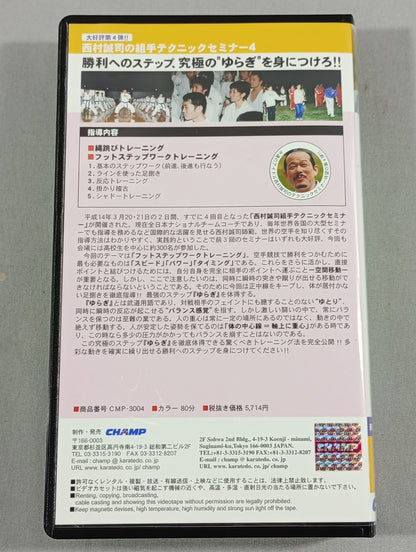 大好評第4弾!!
西村誠司の組手テクニックセミナー4
勝利へのステップ、究極の"ゆらぎ"を身につけろ!!
指導内容
■縄跳びトレーニング
■フットステップワークトレーニング
1. 基本のステップワーク(前進、後進も行なう)
2. ラインを使った足捌き
3. 反応トレーニング
4. 掛かり稽古
5. シャドートレーニング
平成14年3月20・21日の2日間、すでに4回目となった「西村誠司組手テクニックセミナ
ー」が開催された。現在全日本ナショナルチームコーチであり、毎年世界各国の大型セミナ
ーでも指導を務めるなど国際的な活躍を見せる西村誠司師範。世界の空手を知り尽くすその
指導方法はわかりやすく、実践的ということで前3回のセミナーはいずれも大好評。今回も会
場には高校生を中心に約300名が参加した。
今回のテーマは「フットステップワークトレーニング」。空手競技で勝利をつかむために
最も必要なものは「スピード」「パワー」「タイミング」である。これらをさらに活かし、直接
ポイントと結びつけるためには、自分自身を完全に相手のポイントへ運ぶこと=空間移動が一
番重要となる。しかし、ここで注意したいのは、同時に瞬時の突きや蹴りが出せる移動がで
きなければならないということである。そのために今回は正中線をキープし、体が居付かな
い足捌きを徹底指導!! 最強のステップ『ゆらぎ』を体得する。
『ゆらぎ』とは武道用語であり、対戦相手のフェイントにも動じることのない"ゆとり"、
同時に瞬時の反応が起こせる"バランス感覚"を指す。しかし激しい闘いの中で、常にバラ
ンスを保つのは至難の業である。人の重心は常に一定の場所にあるのではなく、動きの中で
絶えず移動する。人が安定した姿勢を保てるのは「体の中心線=軸上に重心」がある時であ
り、この時なら多少の圧力がかかってもバランスを崩すことはないのである。
この究極のステップ『ゆらぎ』を徹底体得できる驚くべきトレーニング法を完全公開!! 多
彩な動きを確実に繰り出せる勝利へのステップを身につけてください!!
●商品番号 CMP-3004 ●カラー 80分 ●税抜き価格 5,714円
制作・発売 CHAMP
〒166-0003
東京都杉並区高円寺南4-19-3 総和第二ビル2F
TEL 03-3315-3190 FAX 03-3312-8207
E-mail : champ @ karatedo. co. jp
URL www. karatedo. co. jp/champ
2F Sohwa 2nd Bldg., 4-19-3 Koenji - minami,
Suginami-ku,Tokyo 166-0003 JAPAN.
TEL:+81-3-3315-3190 FAX:+81-3-3312-8207
E-mail : champ @ karatedo. co. jp
URL www. karatedo. co. jp/champ
■許可なくレンタル・複製・放送・有線送信・上映などに使用することは、法律上禁止致します。
■ビデオカセットは強い磁気を起こす機械の近くや、高温・多湿・直射日光の当たる場所に置かないで下さい。
■Renting, copying, broadcasting,
cable casting and showing this videotape without permission are legally prohibited.
■Keep magnetic devises, high temperature, high humidity and strong sun light off the tape.